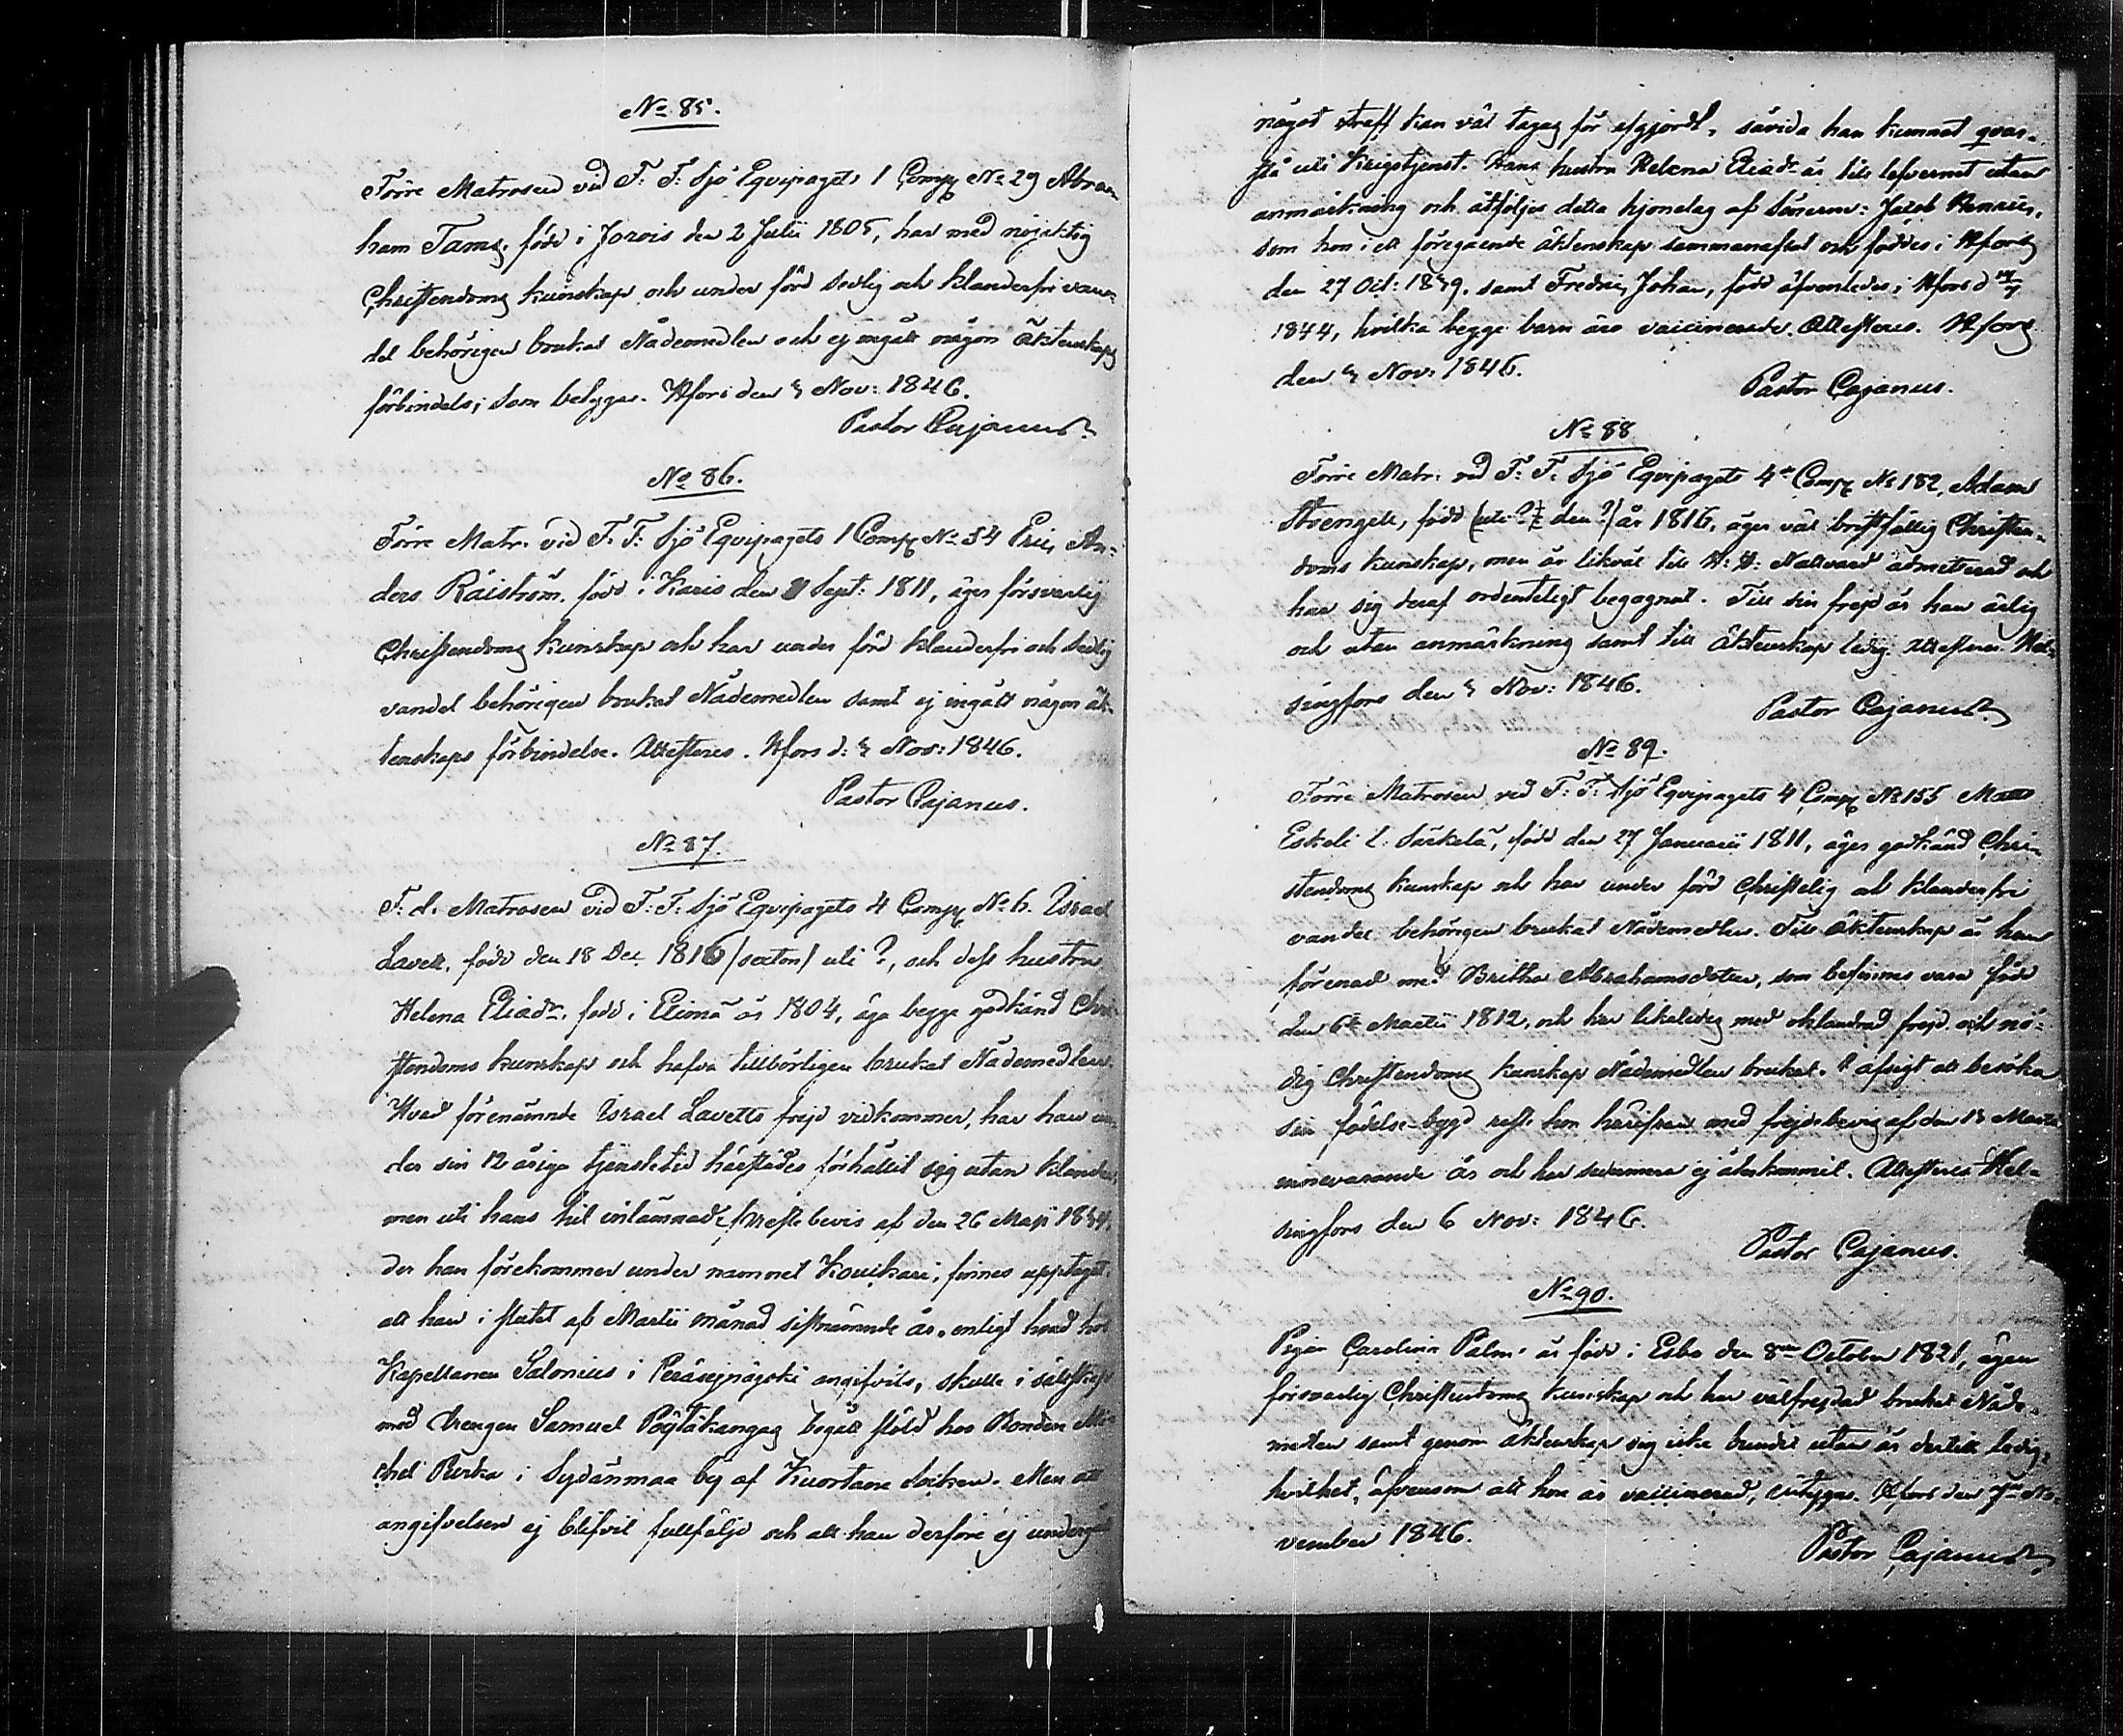 No 85.
Förre Matrosen vid F: F: Sjö Eqvipagets 1 Comp. No 29 Abra-
ham Tams, född i Jorois den 2 Julii 1805, har med nöjaktig
Christendoms kunskap och under förd sedlig och klanderfri van-
del behörigen brukat Nådemedlen och ej ingått någon Äktenskaps
förbindelse; som betygas. Hfors den 5 Nov: 1846.
Pastor Cajanus.
No 86.
Förre Matr. vid F. F: Sjö Eqvipagets 1 Comp. No 54 Eric An-
ders Råström, född i Karis den Sept: 1811, äger försvarlig
Christendoms kunskap och har under förd klanderfri och sedlig
vandel behörigen brukat Nådemedlen samt ej ingått någon äk-
tenskaps förbindelse. Attesteras. Hfors d: 5 Nov: 1846.
Pastor Cajanus.
No 87.
F. d. Matrosen vid F: F: Sjö Eqvipagets 4 Comp. No 6. Israel
Lavett, född den 18 Dec 1816 (sexton) uti ?, och dess hustru
Helena Eliasdr. född i Elimä år 1804, äga begge godkänd Chri-
stendoms kunskap och hafva tillbörligen brukat Nådemedlen.
Hvad förenämnde Israel Lavetts frejd vidkommer, har han un-
der sin 12 åriga tjenstetid härstädes förhållit sig utan klander,
men uti hans hit inlämnade Prestbevis af den 26 Maji 1834,
der han förekommer under namnet Koukari, finnes upptaget:
att han i slutet af Martii månad sistnämnde år, enligt hvad hos
Kapellanen Salonius i Peräseinäjoki angifvits, skulle i sällskap
med Drengen Samuel Pöytäkangas begått stöld hos Bonden Mi-
chel Rinta i Sydänmaa by af Kuortane Socken. Men att
angifvelsen ej blifvit fullföljd och att han derföre ej undergått
något straff kan väl tagas för afgjordt, såvida han kunnat qvar-
stå uti Krigstjenst. Hans hustru Helena Eliasdr är till lefvernet utan
anmärkning och åtföljes detta hjonelag af Sönerne: Jacob Henric,
som hon i ett föregående äktenskap sammanaflat och föddes i Hfors
den 27 Oct: 1839. samt Fredric Johan, född äfvenledes i Hfors d
1844, hvilka begge barn äro vaccinerade. Attesteras. Hfors
den 5 Nov: 1846.
Pastor Cajanus.
No 88
Förre Matr. vid F: F: Sjö Eqvipagets 4de Comp. No 182, Adam
Stvengell, född (uti ? den ?) år 1816, äger väl bristfällig Christen-
doms kunskap, men är likväl till H: H: Nattvard admitterad och
har sig deraf ordenteligt begagnat. Till sin frejd är han ärlig
och utan anmärkning samt till Äktenskap ledig. Attesteras. Hel-
singfors den 5 Nov: 1846.
Pastor Cajanus.
No 89.
Förre Matrosen vid F: F: Sjö Eqvipagets 4 Comp. No 155 Matts
Eskeli l. Särkelä, född den 27 Januarii 1811, äger godkänd Chri-
stendoms kunskap och har under förd christelig och klanderfri
vandel behörigen brukat Nådemedlen. Till Äktenskap är han
förenad med Britha Abrahamsdotter, som befinnes vara född
den 6te Martii 1812, och har likaledes med oklandrad frejd och nö-
dig Christendoms kunskap Nådemedlen brukat. I afsigt att besöka
sin födelse-bygd reste hon härifrån med frejdebevis af den 13 Martii
innevarande år och har sedermera ej återkommit. Attesteras Hel-
singfors den 6 Nov: 1846.
Pastor Cajanus.
No 90.
Pigan Carolina Palm är född i Esbo den 8de October 1821, äger
försvarlig Christendoms kunskap och har välfrejdad brukat Nåde-
medlen samt genom äktenskap sig icke bundit utan är dertill ledig;
hvilket, äfvensom att hon är vaccinerad, betygas. Hfors den 7de No-
vember 1846.
Pastor Cajanus